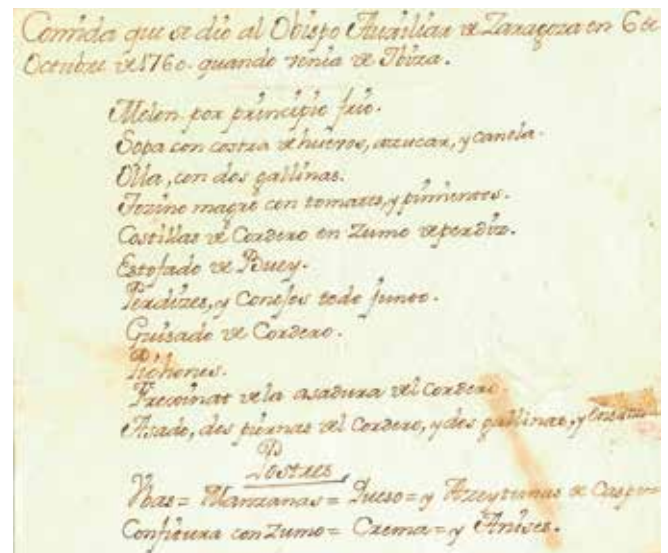 Comida que se dio al Obispo Auxiliar de Zaragoza en 6 de
Octubre de 1760. quando venia de Ibiza.
Melon por principio frio.
Sopa con costra de huevos, azucar, y canela.
Olla, con dos gallinas.
Tozino magro con tomates, y pimientos.
Costillas de Cordero en Zumo de perdiz.
Estofado de Buey.
Perdizes, y Conejos todo junto.
Guisado de Cordero.
Pichones.
de la asadura del Cordero
Asado, dos piernas del Cordero, y dos gallinas, y
Postres
Vbas = Manzanas = Queso = y Azeytunas de Caspe =
Confitura con Zumo = Crema = y Anises.